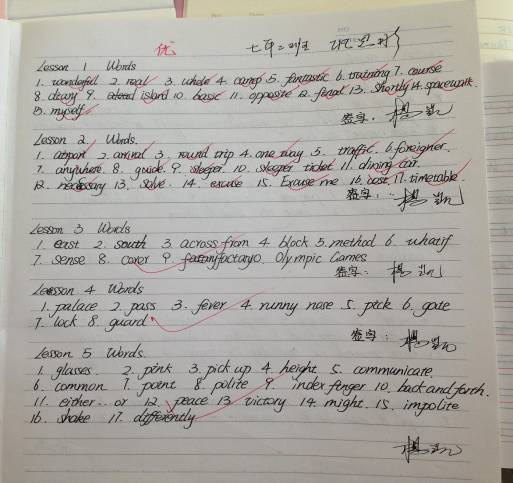 优
Lesson 1 Words
1. wonderful 2. real 3. whole 4. camp 5. fantastic 6. training 7. course
8. diary 9. island 10. basic 11. opposite 12. final 13. Shortly 14. spacewalk
15. myself
签字:
Lesson 2 Words.
1. airport 2. arrival 3. round trip 4. one way 5. traffic 6. foreigner.
7. anywhere 8. guide. 9. sleeper. 10. sleeper ticket 11. dining car.
12. necessary 13. solve. 14. excuse 15. Excuse me 16. cost. 17. timetable.
签字:
Lesson 3 Words
1. east 2. south 3. across from 4. block 5. method 6. what if
7. sense 8. cover 9. factory 10. Olympic Games
签字:
Lesson 4 Words
1. palace 2. pass 3. fever 4. runny nose 5. pick 6. gate
7. lock 8. guard
签字:
Lesson 5 Words.
1. glasses. 2. pink 3. pick up 4. height 5. communicate.
6. common 7. point 8. polite 9. index finger 10. back and forth.
11. either... or 12. peace 13. victory 14. might. 15. impolite
16. shake 17. differently